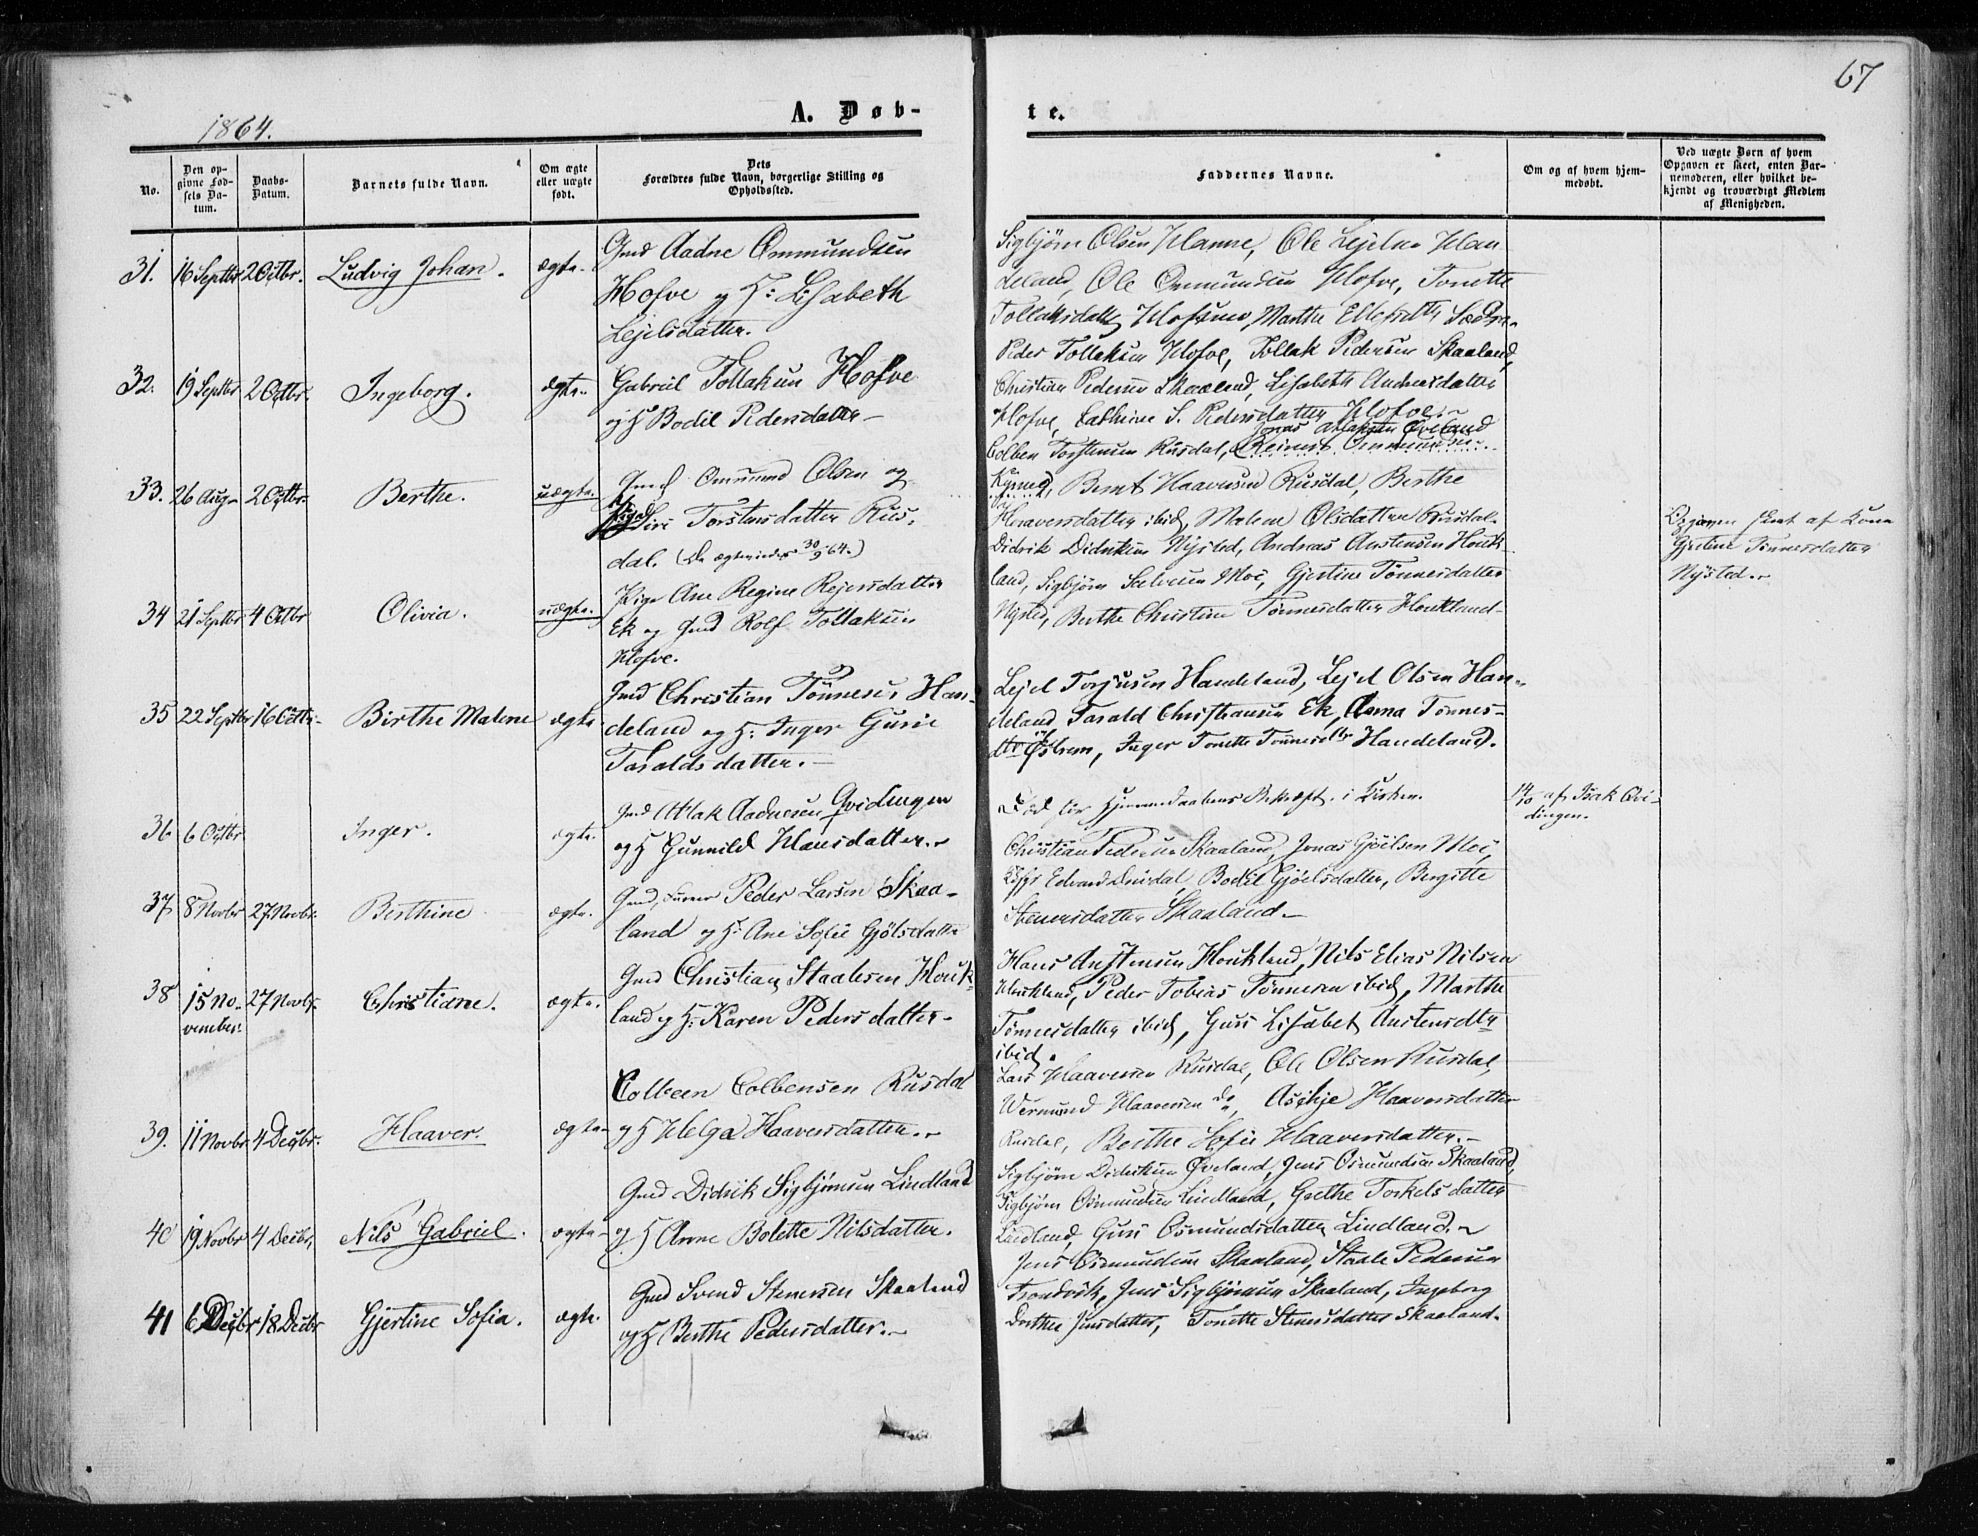 67
1864.
A. Døb-
te.
No.
Den op-
givne Fød-
sels Da-
tum.
Daabs-
Datum.
Barnets fulde Navn.
Om ægte
eller uægte
født.
Dets
Forældres fulde Navn, borgerlige Stilling og
Opholdssted.
Faddernes Navne.
Om og af hvem hjem-
medøbt.
Ved uægte Børn af hvem
Opgaven er skeet, enten Bar-
nemoderen, eller hvilket be-
kjendt og troværdigt Medlem
af Menigheden.
31. 16 Septbr 2 Octbr. Ludvig Johan. ægte.
Gmd Aadne Ommundsen
Hofve og H: Lisabeth
Lejelsdatter.
Sigbjørn Olsen Hanne, Ole Lejelsen Han
deland, Ole Ommundsen Hofve, Tonette
Tollaksdatter Hofsmo, Marthe
32. 19 Septbr 2 Octbr. Ingeborg. ægte.
Gabriel Tollaksen Hofve
og H Bodil Pedersdatter
Peder Tollaksen Hofve, Tollak Pedersen Skaaland,
Christian Pedersen Skaaland, Lisabeth Andreasdatter
Hofve, Cathrine S. Pedersdatter Hofve.
33. 26 Aug. 2 Octbr. Berthe. uægte.
Gmd Ommund Olsen og
Siri Torstensdatter Rus-
dal. (De ægteviedes 30/9 64.)
Jonas Atlaksen Qveland
Colben Torstensen Rusdal, Reinert Ommundsen
Bernt Haaversen Rusdal, Berthe
Haaversdatter ibid, Malene Olsdatter Rusdal.
34 21 Septbr 4 Octbr Olivia. uægte.
Pige Ane Regine Rejersdatter
Ek og Gmd Rolf Tollaksen
Hofve.
Didrik Didriksen Nysted, Andreas Austensen Houk
land, Sigbjørn Salvesen Moi, Gjertine Tønnesdatter
Nysted, Berthe Christine Tønnesdatter Houkland
Opgaven skeet af Kone
Gjertine Tønnesdatter
Nysted.
35 22 Septbr 16 Octbr. Birthe Malene ægte.
Gmd Christian Tønnesen Han-
deland og H: Inger Gurie
Taraldsdatter.
Lejel Torjusen Handeland, Lejel Olsen Han-
deland, Tarald Christiansen Ek, Anna Tønnes-
dtr Østrem, Inger Tonette Tønnesdtr Handeland.
36 6 Octbr. Inger. ægte.
Gmd Atlak Aadnesen Qvidingen
og H Gunnild Hansdatter.
Død før Hjemmedaabens Bekræft. i Kirken.
14/10 af Isak Qvi-
dingen.
37 8 Novbr 27 Novbr. Berthine ægte.
Gmd, Peder Larsen Skaa-
land og H: Ane Sofie Gjølsdatter
Christian Pedersen Skaaland, Jonas Gjøelsen Moi,
Edvard Drivdal, Bodil Gjøelsdatter, Bergitte
Stenersdatter Skaaland.
38 15 No-
vember. 27 Novbr. Christiane. ægte.
Gmd Christian Staalesen Houk-
land og H: Karen Pedersdatter
Hans Austensen Houkland, Nils Elias Nilsen
Houkland, Peder Tobias Tønnesen ibid, Marthe
Tønnesdatter ibid, Guri Lisabet Austensdtr
ibid.
39. 11 Novbr 4 Decbr. Haaver. ægte
Colben Colbensen Rusdal
og H Helga Haaversdatter.
Lars Haaversen Rusdal, Ole Olsen Rusdal,
Wermund Haaversen do, Haaversdatter
Rusdal, Berthe Sofie Haaversdatter.
40 19 Novbr 4 Decbr, Nils Gabriel. ægte
Gmd Didrik Sigbjørnsen Lindland
og H Anne Bolette Nilsdatter.
Sigbjørn Didriksen Qveland, Jens Osmundsen Skaaland,
Sigbjørn Osmundsen Lindland, Grethe Torkelsdatter
Lindland, Guri Osmundsdatter Lindland.
41 6 Decbr 18 Decbr Gjertine Sofia. ægte.
Gmd Svend Stenersen Skaaland
og H Berthe Pedersdatter.
Jens Osmundsen Skaaland, Staale Pedersen
Trondvik, Jens Sigbjørnsen Skaaland, Ingeborg
Dorthe Jensdatter, Tonette Stenersdatter Skaaland.